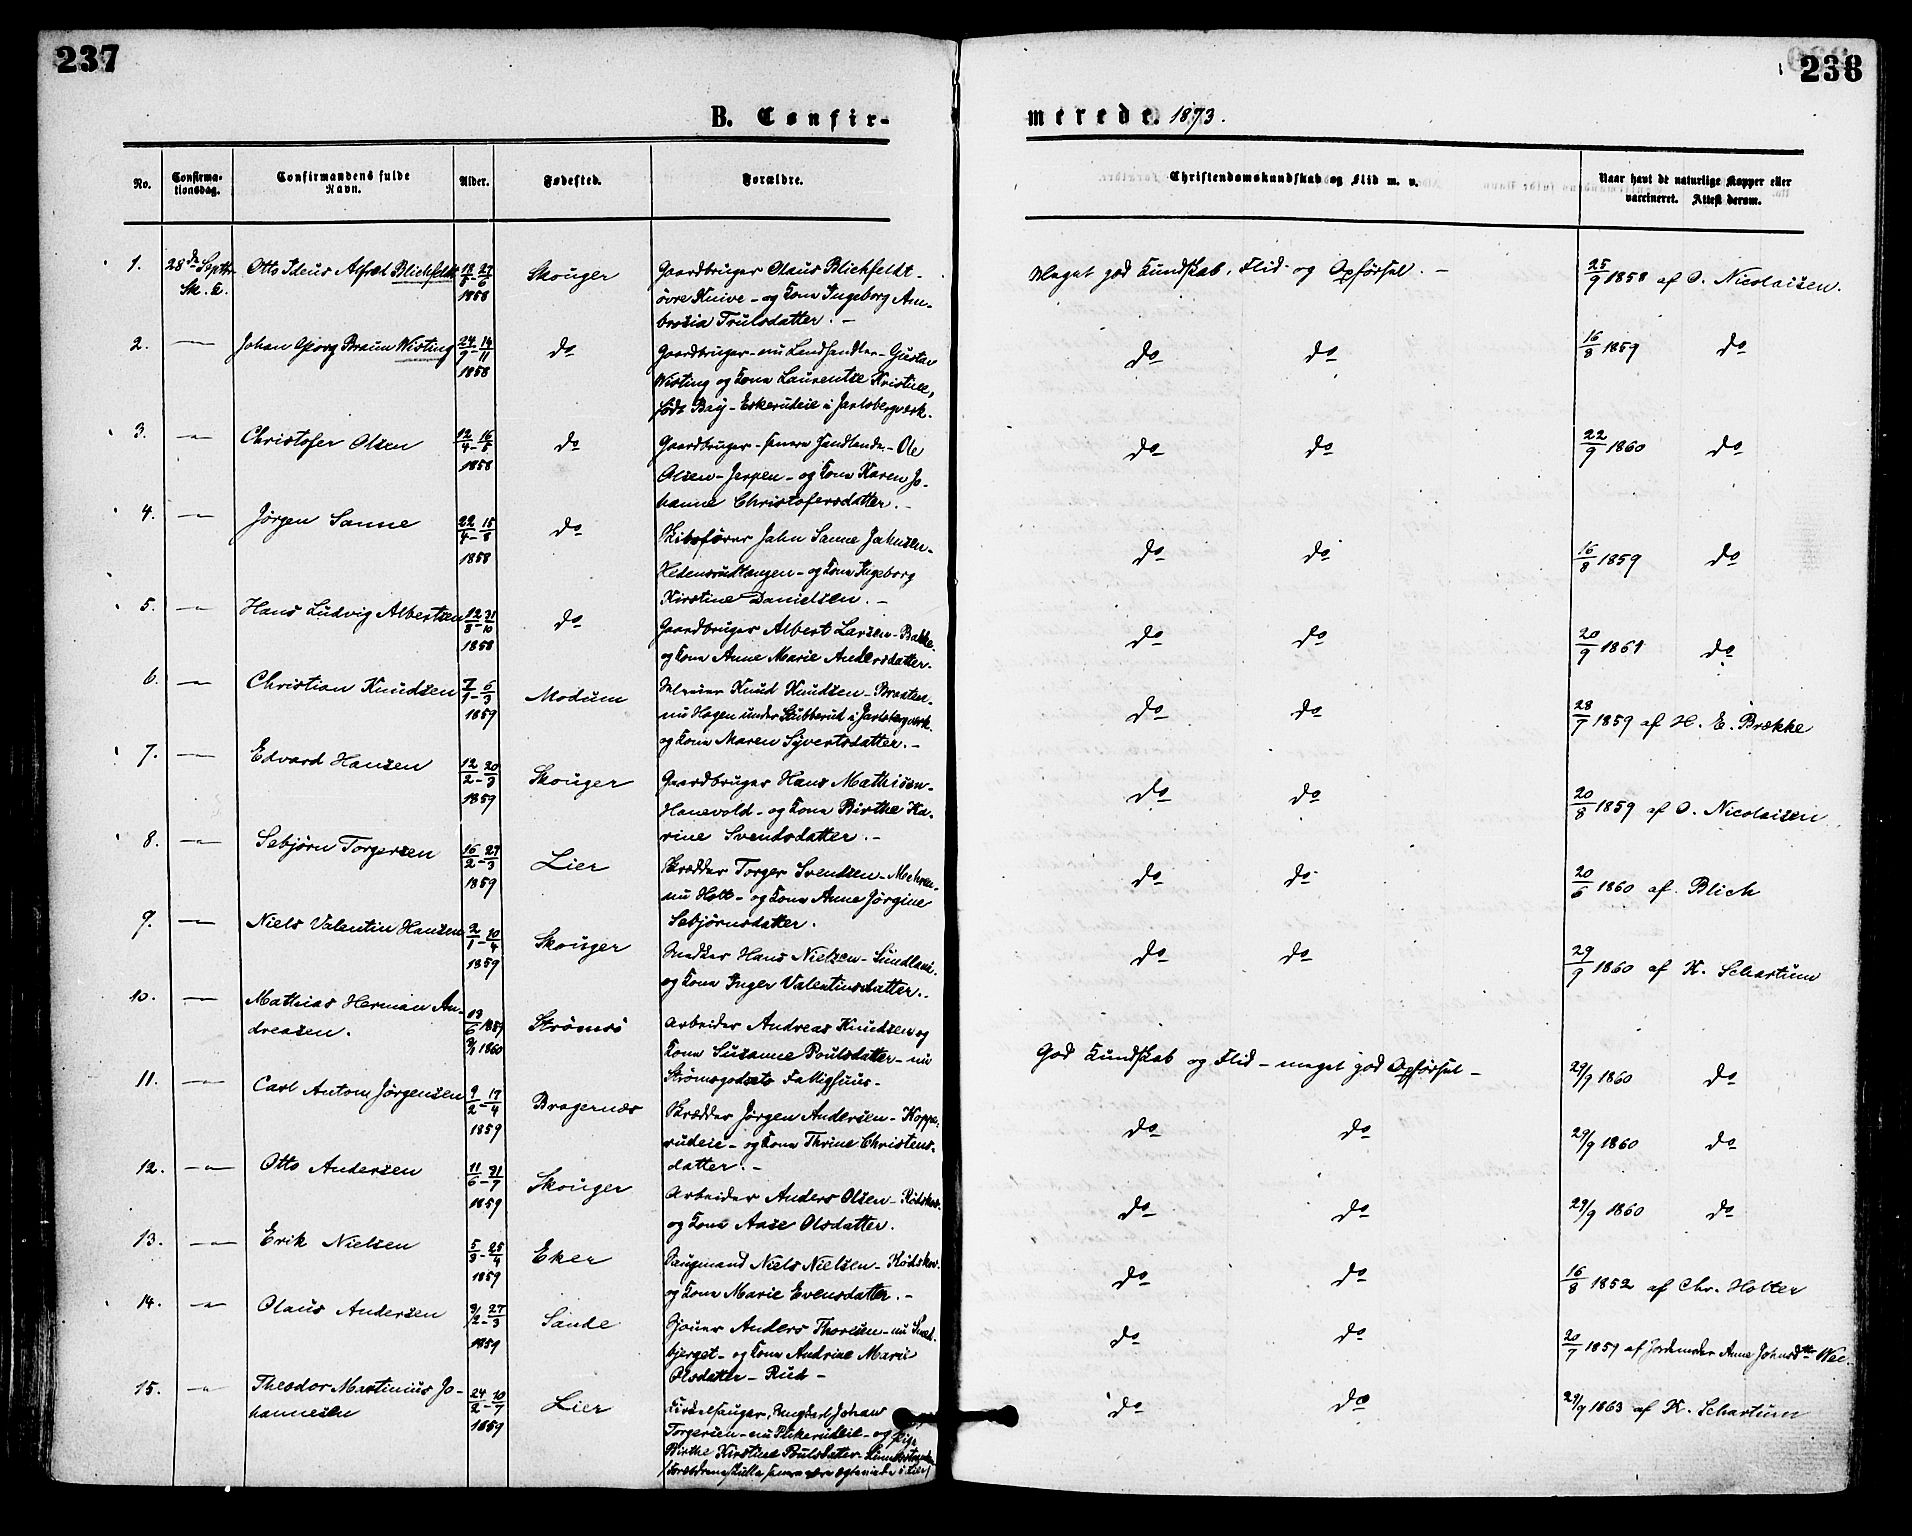 237
238
B. Confir-
merede. 1873.
No.
Confirma-
tionsdag.
Confirmandens fulde
Navn.
Alder.
Fødested.
Forældre.
Christendomskundskab og Flid m. v.
Naar havt de naturlige Kopper eller
vaccineret. Attest derom.
1. 28de Septbr. Otto Ideus Alfred Blichfeldt 27/6 Skouger Gaardbruger Olaus Blichfeldt- Meget god Kundskab, Flid og Opførsel. - 25/9 1858 af O. Nicolaisen.
Sk. K. 1858 övre Knive - og Kone Ingeborg Am-
brosia Trulsdatter. -
2. Johan Georg Braun Wisting 24/9-14/11 do Gaardbruger - nu Landhandler - Gustav do do 16/8 1859 do
1858 Wisting og Kone Laurentse Kristine,
født Bay - Eskerudeie i Jarlsbergværk.
3. Christofer Olsen 12/4-16/5 do Gaardbruger - Ole do do 22/9 1860 do
1858 Olsen - Jerpen - og Kone Karen Jo-
hanne Christofersdatter. -
4. Jørgen Sanne 22/4-15/8 do Skibsfører Jahn Sanne Jahnsen - do do 16/8 1859 do
1858 Hedensrudtangen - og Kone Ingeborg
Kirstine Danielsen. -
5. Hans Ludvig Albertsen 12/8-31/10 do Gaardbruger Albert Larsen - Bakke do do 20/9 1861 do
1858 og Kone Anne Marie Andersdatter.
6. Christian Knudsen 7/1-6/3 Modum Knud Knudsen - Braaten - do do 28/7 1859 af H. E. Brække
1859 nu Hagen under Stubberud i Jarlsbergværk.
og Kone Maren Syvertsdatter. -
7. Edvard Hansen 12/2-20/3 Skouger Gaardbruger Hans Mathisen - do do 20/8 1859 af O. Nicolaisen
1859 Hanevold - og Kone Birthe Ka-
rine Svendsdatter. -
8. Sebjørn Torgersen 16/2-27/3 Lier Skrædder Torger Svendsen - Mehren - do do 20/6 1860 af Blich
1859 nu Holt - og Kone Anne Jørgine
Sebjørnsdatter.
9. Niels Valentin Hansen 2/1-10/4 Skouger Hans Nielsen - Sundland. do do 29/9 1860 af K. Schartum
1859 og Kone Inger Valentinsdatter.
10. Mathias Herman An- 13/6 1859 Strömsö Arbeider Andreas Knudsen og God Kundskab og Flid - meget god Opførsel - 29/9 1860 do
dreasen. 1860 Kone Susanne Poulsdatter - nu
Strömsgodsets Fattighuus -
11. Carl Anton Jørgensen 9/2-17/4 Bragernæs Skrædder Jörgen Andersen - Koppe- do do 29/9 1860 do
1859 rudeie - og Kone Thrine Christens-
datter. -
12. Otto Andersen 11/6-31/7 Skouger Arbeider Anders Olsen - Rödskov. do do 29/9 1860 do
1859 og Kone Aase Olsdatter.
13. Erik Nielsen 5/3-25/4 Eker Niels Nielsen - Rödskov. do do 16/8 1852 af Chr. Holter
1859 og Kone Marie Evensdatter. -
14. Olaus Andersen 27/3 Sande Anders Thoresen - nu do do 20/7 1859 af Jordemoder Anne Johnsdtr
1859 bjerget - og Kone Andrine Marie
Olsdatter - Rud -
15. Theodor Martinius Jo- 24/2-10/7 Lier Kirkesanger, Ungkarl Johan do do 29/9 1863 af K. Schartum
hannesen 1859 Torgersen - og Pige
Birthe Kirstine Poulsdatter -